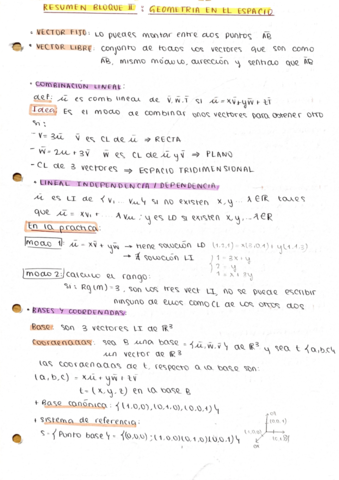 RESUMEN BLOQUE II : GEOMETRIA EN EL ESPACIO
• VECTOR FIJO: lo puedes montar entre dos puntos AB
• VECTOR LIBRE: conjunto de todos los vectores que son como
AB, mismo módulo, dirección y sentido que AB
• COMBINACION LINEAL:
def: ū es comb lineal de v̄, w̄, t̄ si ū = xv̄+yw̄+zt̄
Idea: Es el modo de combinar unos vectores para obtener otro
si:
- v̄ = 3ū v̄ es CL de ū ⇒ RECTA
- w̄ = 2ū + 3v̄ w̄ es CL de ū y v̄ ⇒ PLANO
- CL de 3 vectores ⇒ ESPACIO TRIDIMENSIONAL
• LINEAL INDEPENDENCIA / DEPENDENCIA:
ū es LI de {v₁ ... vₙ} si no existen x, y... λ∈ℝ tales
que ū = xv₁ + ... λvₙ : y es LD si existen x, y... λ∈ℝ
En la práctica:
modo 1: ū = xv̄ + yw̄ → tiene solución LD
→ ∄ solución LI
modo 2: calculo el rango:
si: Rg(M) = 3, son los tres vect LI, no se puede escribir
ninguno de ellos como CL de los otros dos
• BASES Y COORDENADAS
Base: son 3 vectores LI de ℝ³
Coordenadas: sea B una base = {ū, w̄, v̄} de ℝ³ y sea t (a,b,c)
un vector de ℝ³
las coordenadas de t respecto a la base son:
(a, b, c) = xū + yw̄ + zv̄
t = (x, y, z) en la base B
+ Base canónica: {(1,0,0), (0,1,0), (0,0,1)}
+ Sistema de referencia:
S = {Punto base} = {(0,0,0) ; (1,0,0)(0,1,0)(0,0,1)}